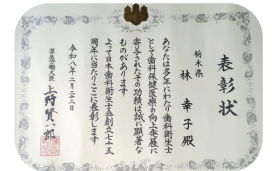 表彰状
栃木県
林 幸子殿
あなたは多年にわたり歯科衛生士
として歯科保健医療の向上発展に
寄与されその功績は誠に顕著な
ものがあります
よって日本歯科衛生士会創立七十五
周年に当たりここに表彰します
令和八年二月二十二日
厚生労働大臣
上野賢一郎